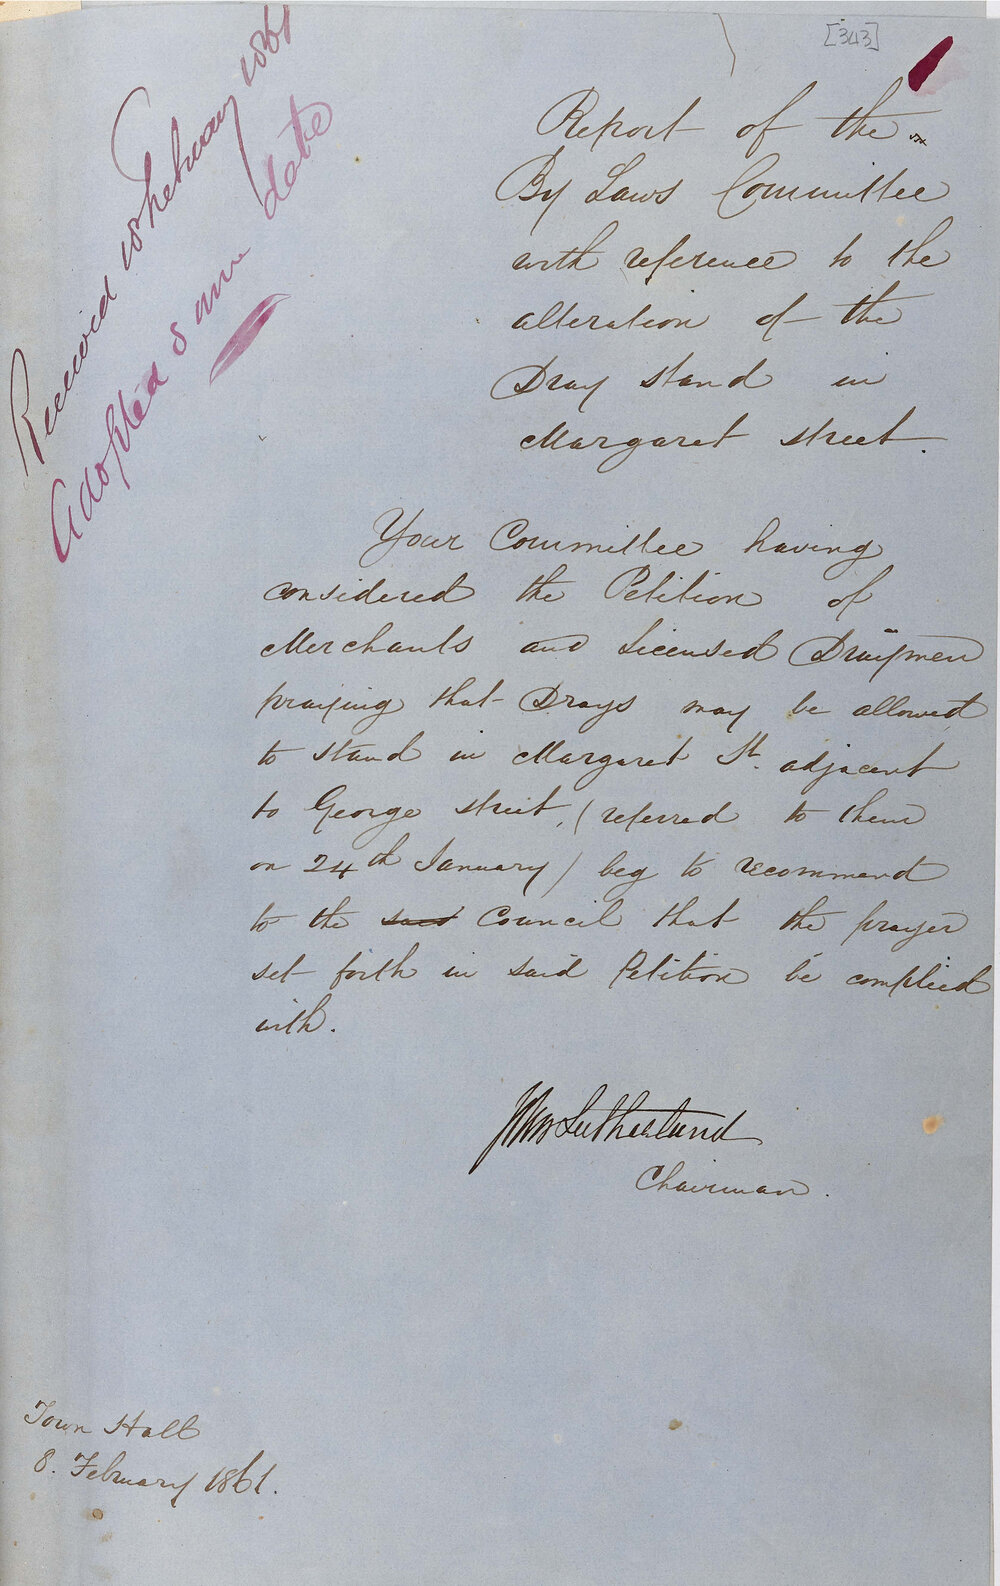 [343]
Received 18 February 1861
Adopted same date
Report of the
By Laws Committee
with reference to the
alteration of the
Dray stand in
Margaret street.
Your Committee having
considered the Petition of
Merchants and Licensed Draymen
praying that Drays may be allowed
to stand in Margaret St. adjacent
to George street, (referred to them
on 24th January) beg to recommend
to the said Council that the prayer
set forth in said Petition be complied
with.
Sutherland
Chairman.
Town Hall
8. February 1861.